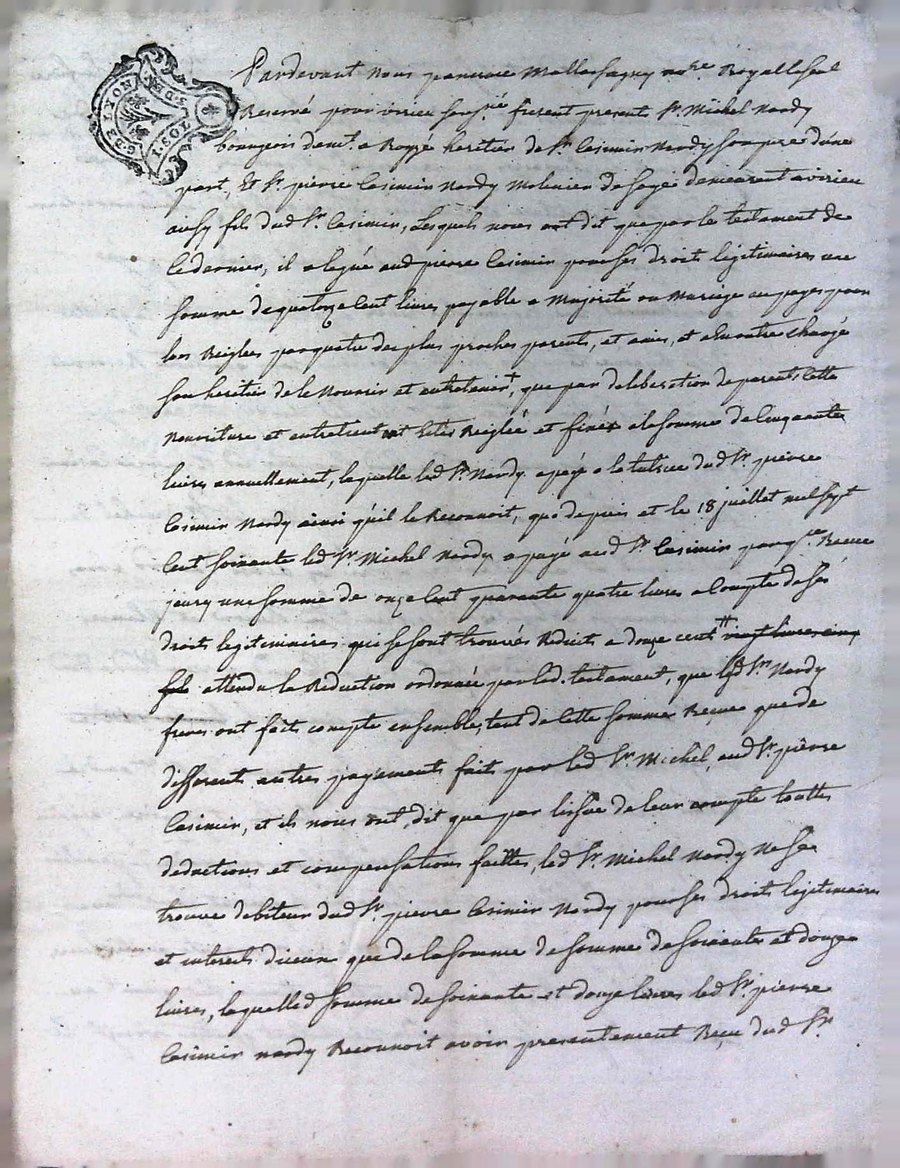 GEN. LYON
1. SOL. 8. D. EN.
Pardevant nous notre Royal
Reservé pour virieu soussé furent present Sr. Michel Nardy
bourgeois demt. a heretier de Sr. Casimir Nardy son pere d'une
part, Et Sr. pierre Casimir Nardy Molinier de soye demeurant a virieu
aussy fils dud Sr. Casimir, Lesquels nous ont dit que par le testament de
ce dernier, il a legué aud pierre Casimir pour ses droit légitimaires une
somme de quatorze cent livres payable a Majorité ou Mariage au pages pour
lors Reiglés par quatre des plus proches parents, et amis, et en outre chargé
son heretier de le Nourrir et entretenir, que par deliberation de parents cette
Nourriture et entretient ont Eté Reiglée et finée a la somme de Cinquante
livres annuellement, laquelle led Sr. Nardy a payé a la tutrice dud Sr. pierre
Casimir Nardy ainsi qu'il le Reconnoit, que depuis et le 18 juillet mil sept
Cent soixante led Sr. Michel Nardy a payé aud Sr. Casimir par qce. Recue
une somme de onze Cent quarante quatre livres a Compte de ses
droit legitimaires qui se sont trouvés Reduits a douze cent tt vingt livres cinq
sols attendu la Reduction ordonnée par led. testament, que lesd Srs Nardy
freres ont faits compte ensemble, tant de Cette somme Reçue que de
differents autres payements faits par led Sr. Michel, aud Sr. pierre
Casimir, et ils nous ont dit que par l'issue de leur compte touttes
deductions et compensations faittes, led Sr. Michel Nardy ne se
trouve debiteur dud Sr. pierre Casimir Nardy pour ses droits legitimaires
et interets d'iceux que de la somme de somme de soixante et douze
livres, laquelled somme de soixante et douze livres led Sr. pierre
Casimir Nardy Reconnoit avoir presentement Reçu dud Sr.